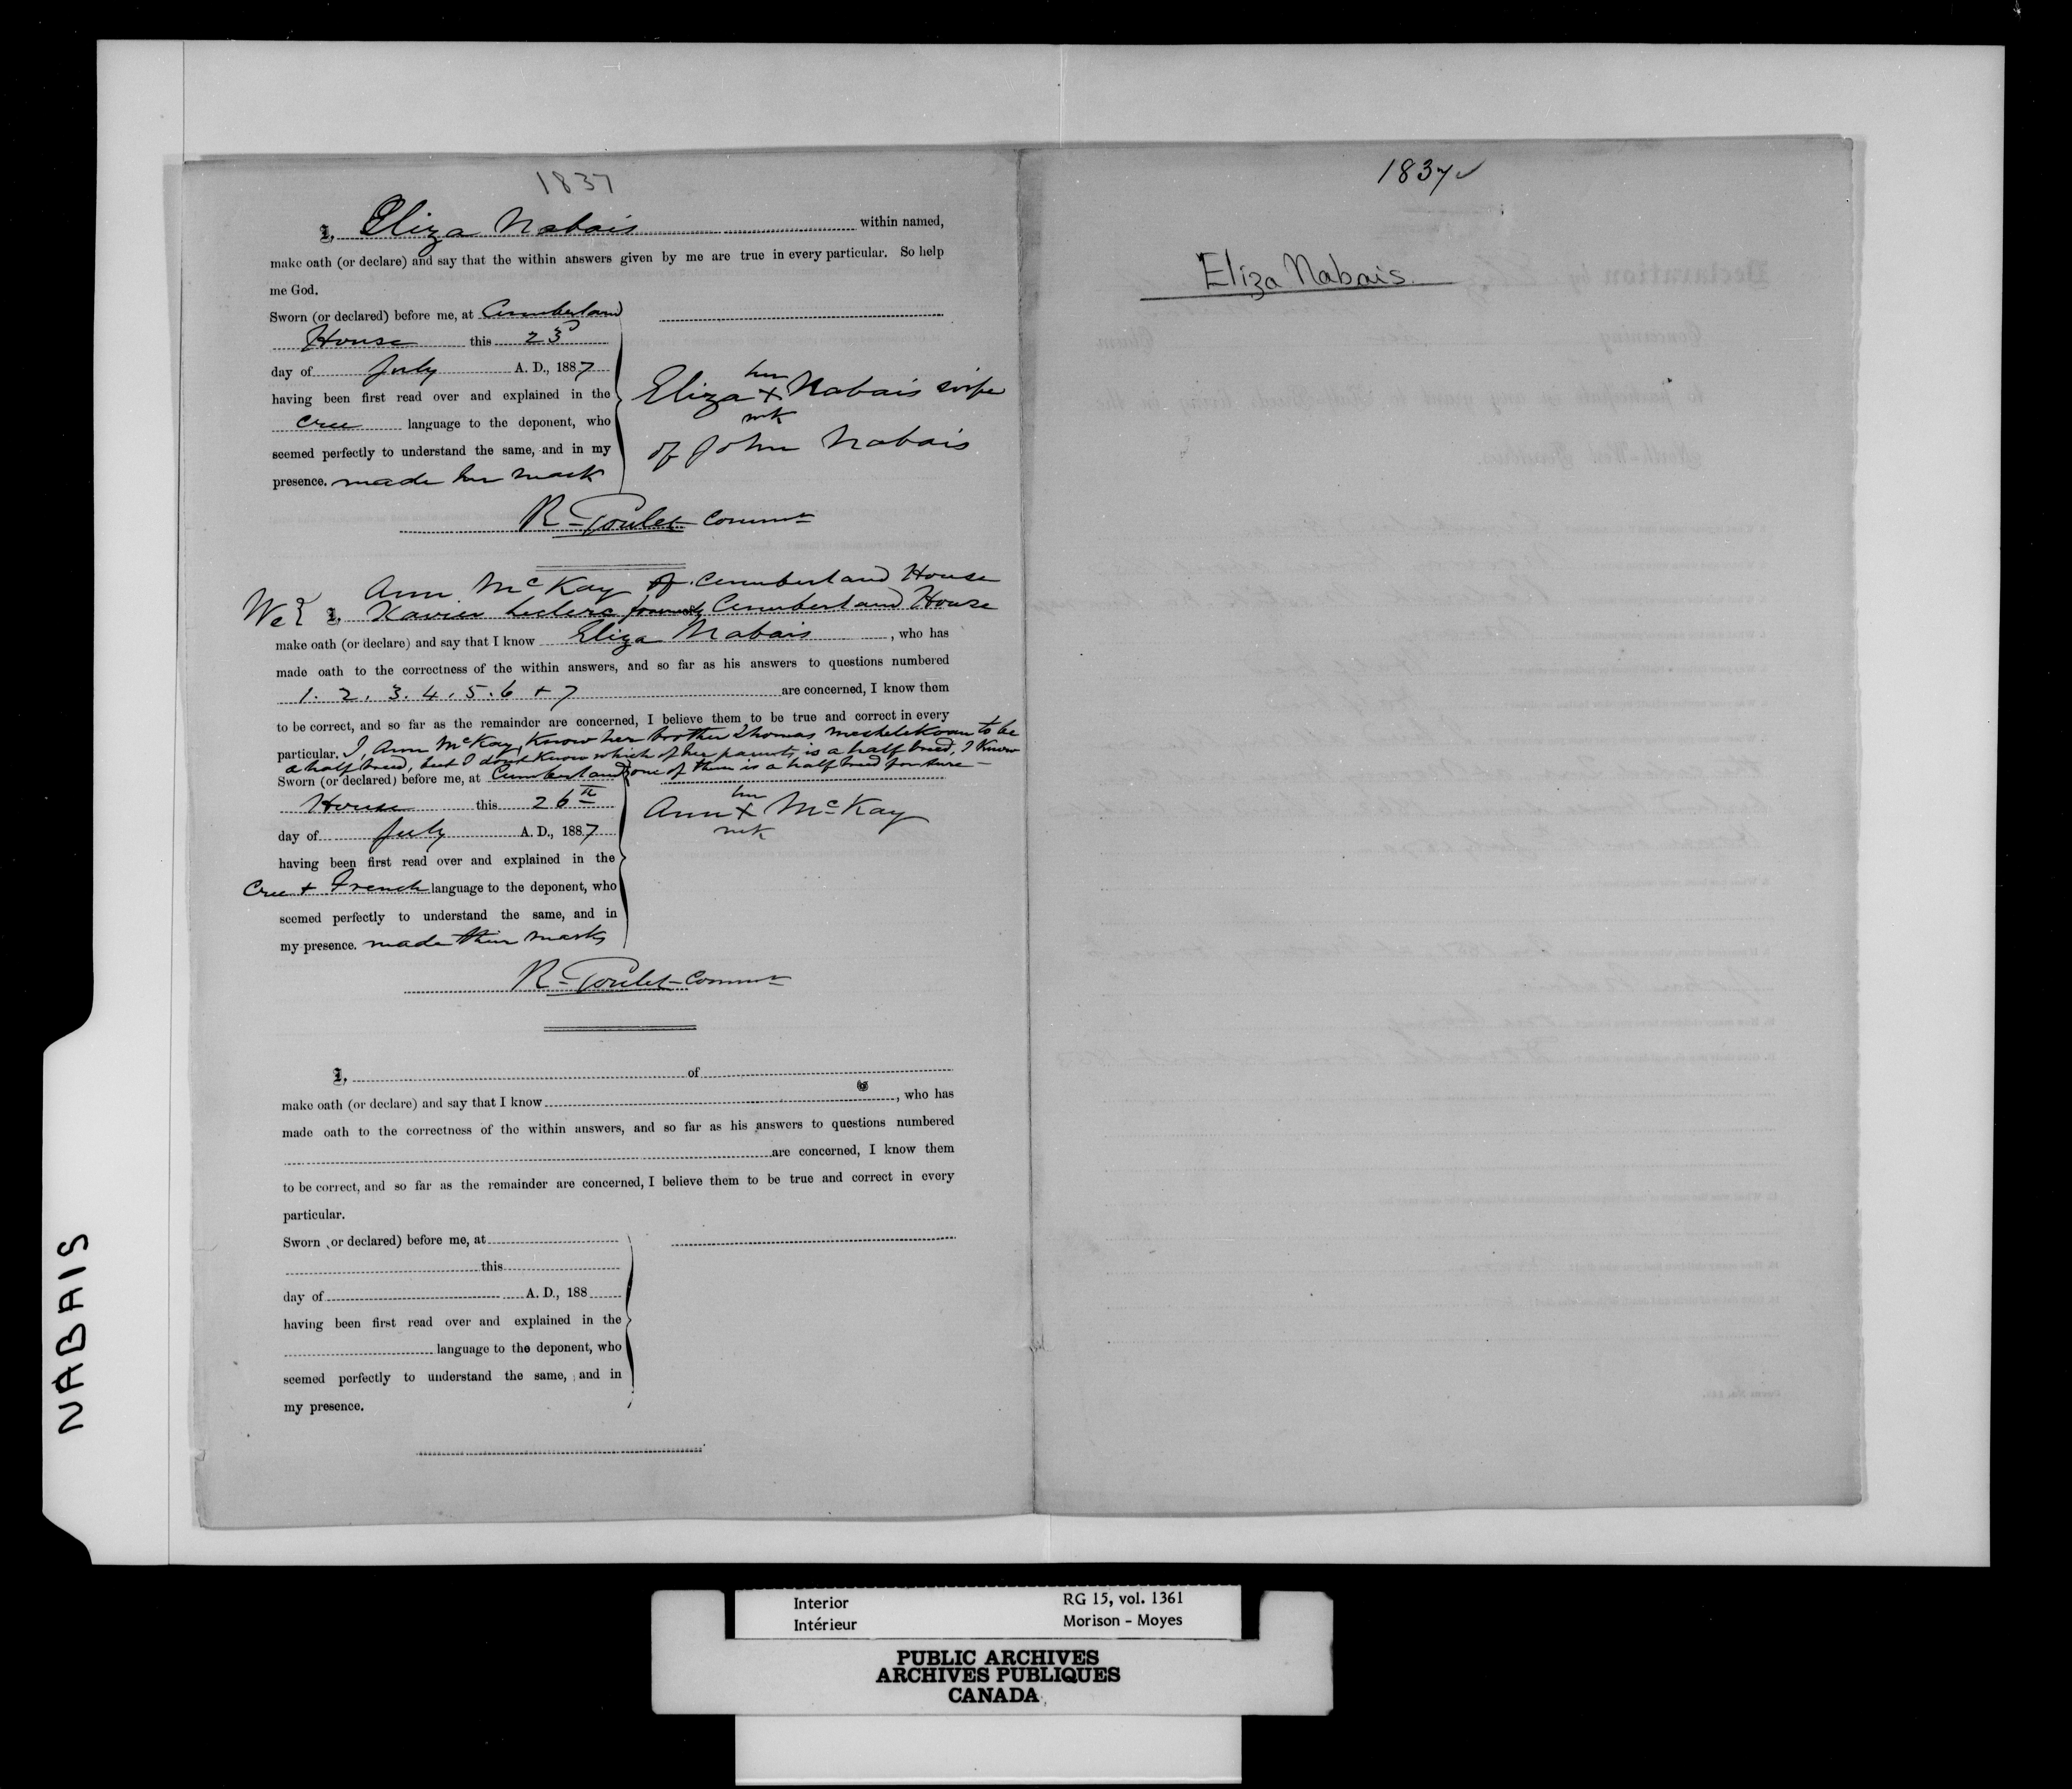 1837
I, Eliza Nabais within named,
make oath (or declare) and say that the within answers given by me are true in every particular. So help
me God.
Sworn (or declared) before me, at Cumberland
House this 23
day of July A. D., 1887
having been first read over and explained in the
Cree language to the deponent, who
seemed perfectly to understand the same, and in my
presence. made her mark
her
Eliza X Nabais wife
mk
of John Nabais
R. Goulet Commr
Ann McKay of Cumberland House
We { I, Xavier Leclerc formerly Cumberland House
make oath (or declare) and say that I know Eliza Nabais, who has
made oath to the correctness of the within answers, and so far as his answers to questions numbered
1. 2. 3. 4. 5. 6 + 7 are concerned, I know them
to be correct, and so far as the remainder are concerned, I believe them to be true and correct in every
particular. I, Ann McKay, know her brother Thomas to be
a half breed, but I dont know which of her parents is a half breed, I know
one of them is a half breed for sure
Sworn (or declared) before me, at Cumberland
House this 26th
day of July A. D., 1887
having been first read over and explained in the
Cree + French language to the deponent, who
seemed perfectly to understand the same, and in
my presence. made their marks
her
Ann X McKay
mk
R. Goulet Commr
I, of
make oath (or declare) and say that I know , who has
made oath to the correctness of the within answers, and so far as his answers to questions numbered
are concerned, I know them
to be correct, and so far as the remainder are concerned, I believe them to be true and correct in every
particular.
Sworn or declared) before me, at
this
day of A. D., 188
having been first read over and explained in the
language to the deponent, who
seemed perfectly to understand the same, and in
my presence.
1837
Eliza Nabais
NABAIS
Interior RG 15, vol. 1361
Intérieur Morison - Moyes
PUBLIC ARCHIVES
ARCHIVES PUBLIQUES
CANADA